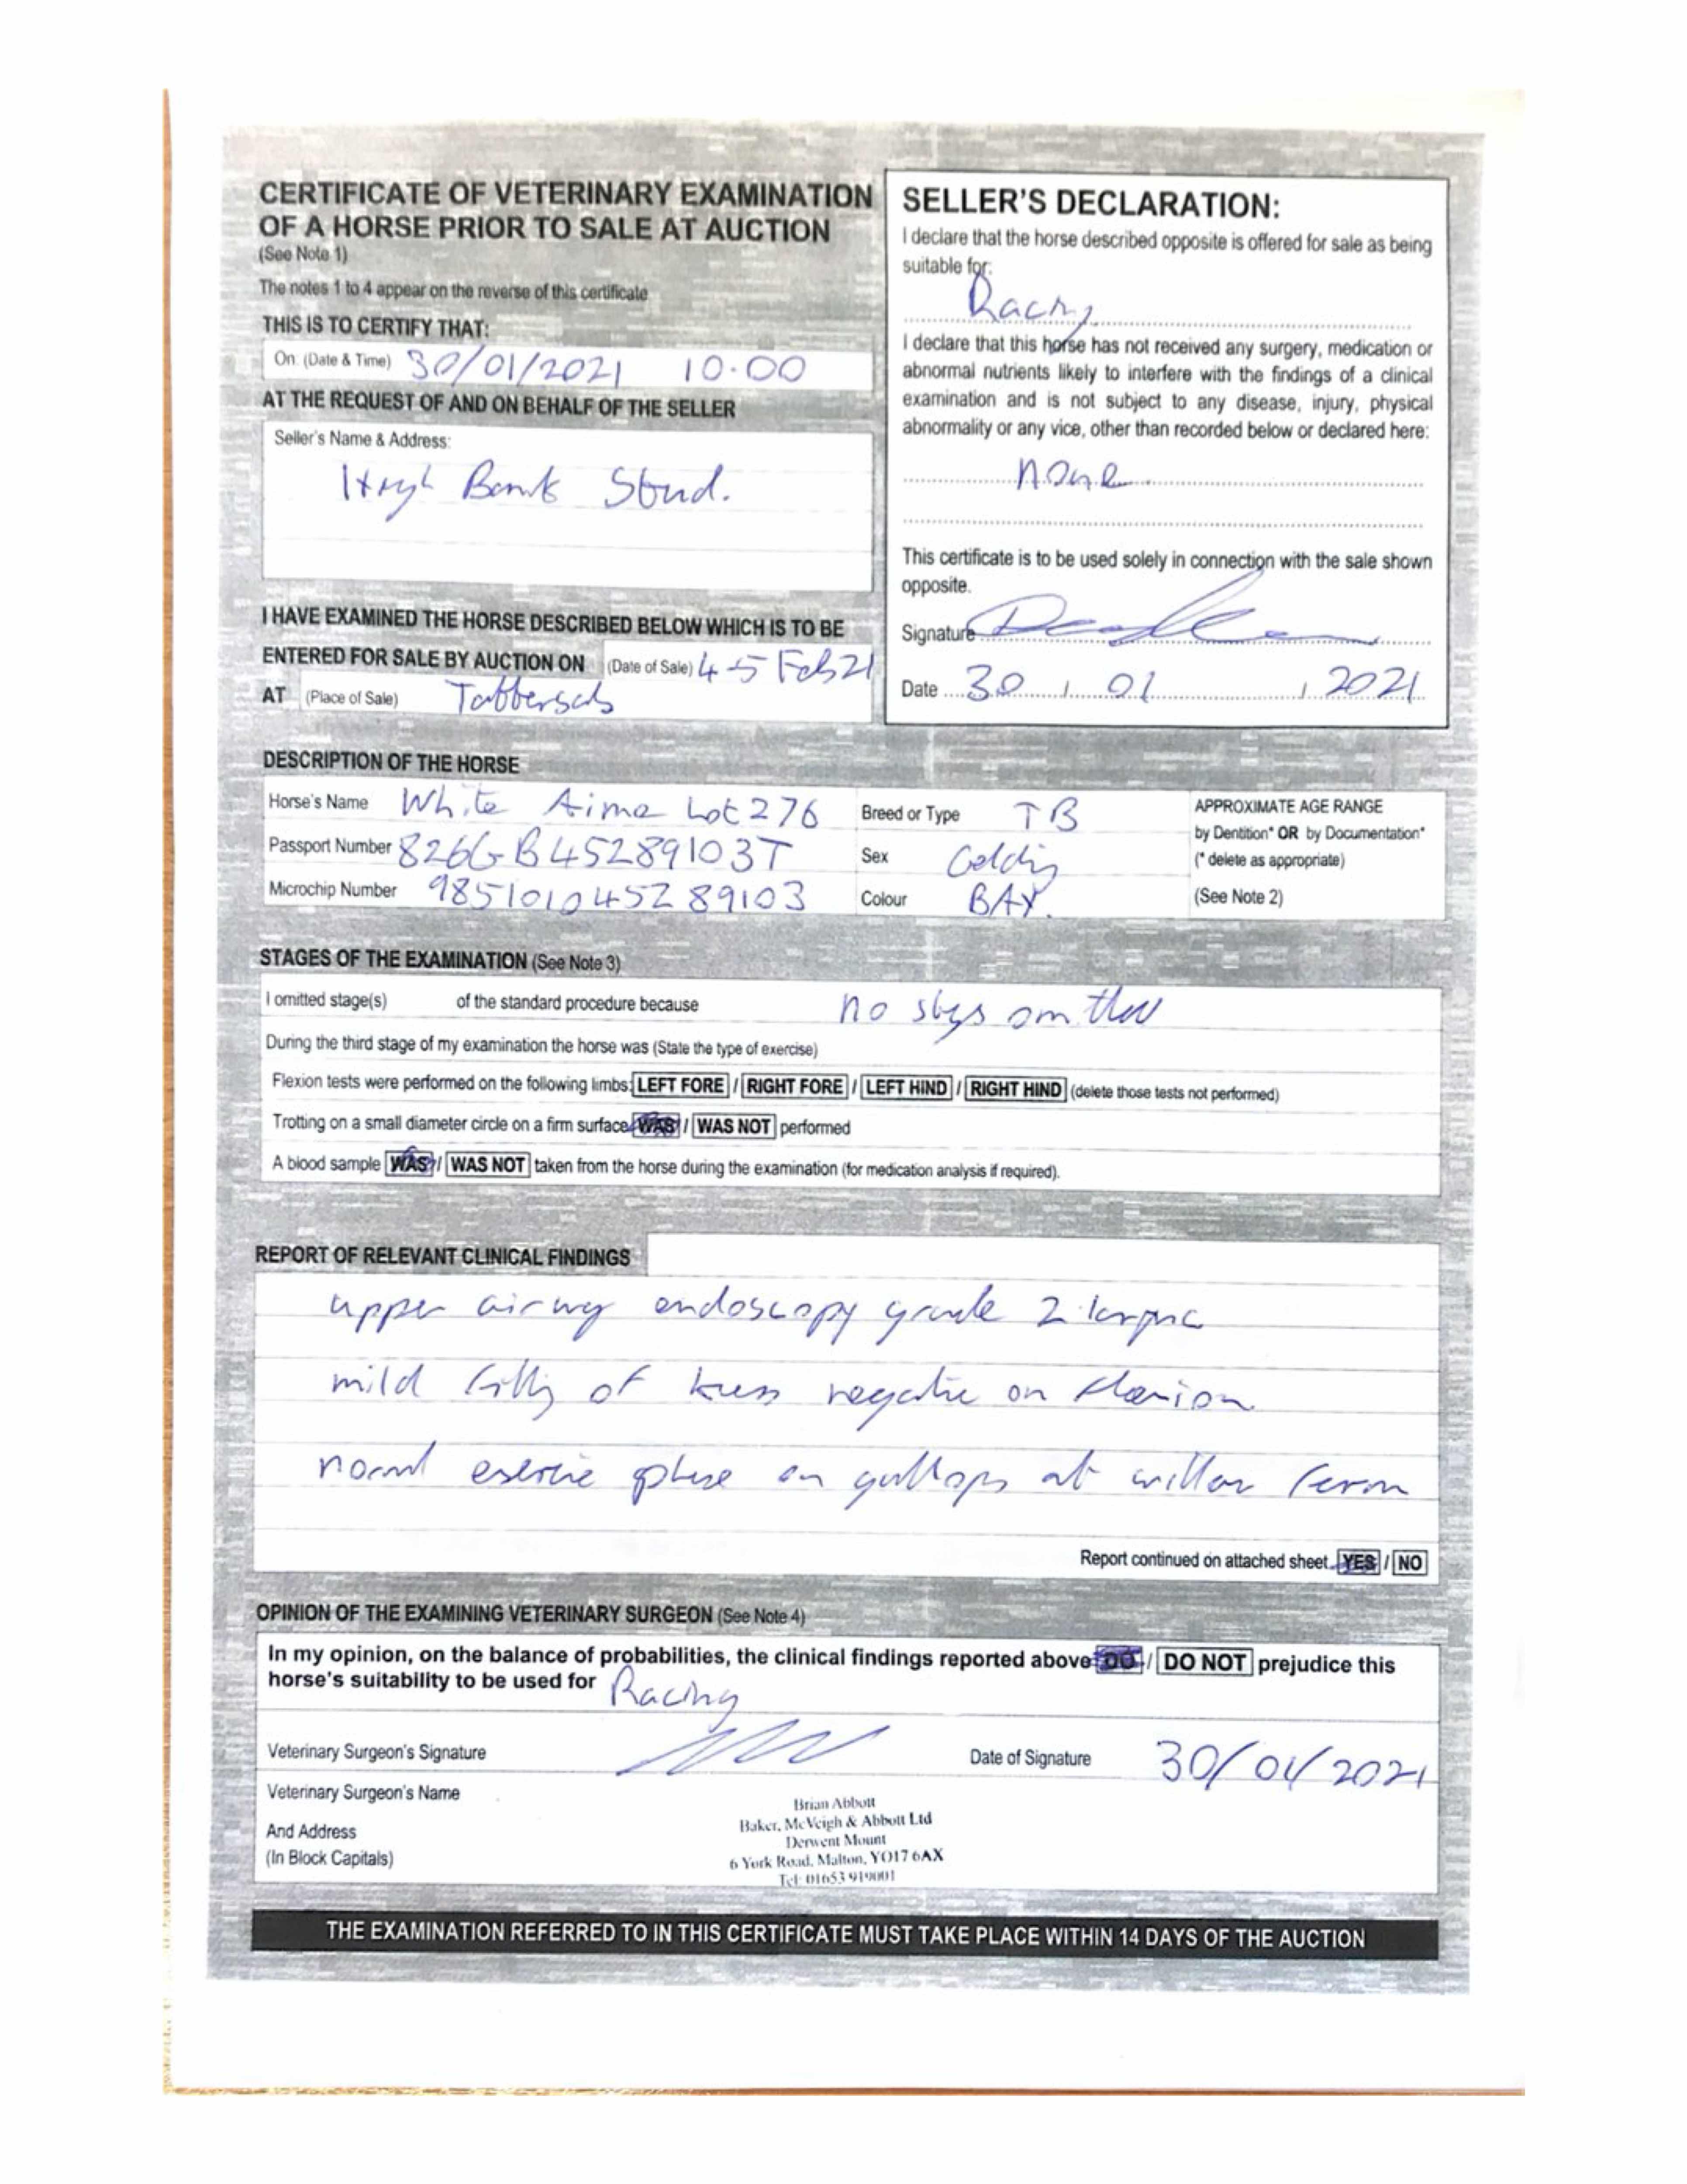 CERTIFICATE OF VETERINARY EXAMINATION
OF A HORSE PRIOR TO SALE AT AUCTION
(See Note 1)
The notes 1 to 4 appear on the reverse of this certificate
THIS IS TO CERTIFY THAT:
On: (Date & Time) 30/01/2021 10.00
AT THE REQUEST OF AND ON BEHALF OF THE SELLER
Seller's Name & Address:
High Bank Stud.
I HAVE EXAMINED THE HORSE DESCRIBED BELOW WHICH IS TO BE
ENTERED FOR SALE BY AUCTION ON (Date of Sale) 4-5 Feb 21
AT (Place of Sale)
SELLER'S DECLARATION:
I declare that the horse described opposite is offered for sale as being
suitable for:
Racing
I declare that this horse has not received any surgery, medication or
abnormal nutrients likely to interfere with the findings of a clinical
examination and is not subject to any disease, injury, physical
abnormality or any vice, other than recorded below or declared here:
none
This certificate is to be used solely in connection with the sale shown
opposite.
Signature
Date 30 / 01 / 2021
DESCRIPTION OF THE HORSE
Horse's Name White Aime Lot 276
Passport Number 826GB45289103T
Microchip Number 985101045289103
Breed or Type TB
Sex Gelding
Colour BAY.
APPROXIMATE AGE RANGE
by Dentition* OR by Documentation*
(* delete as appropriate)
(See Note 2)
STAGES OF THE EXAMINATION (See Note 3)
I omitted stage(s) of the standard procedure because no
During the third stage of my examination the horse was (State the type of exercise)
Flexion tests were performed on the following limbs: LEFT FORE / RIGHT FORE / LEFT HIND / RIGHT HIND (delete those tests not performed)
Trotting on a small diameter circle on a firm surface WAS / WAS NOT performed
A blood sample WAS / WAS NOT taken from the horse during the examination (for medication analysis if required).
REPORT OF RELEVANT CLINICAL FINDINGS
upper airway endoscopy grade 2
mild of negative on flexion
normal exercise phase on gallops at farm
Report continued on attached sheet. YES / NO
OPINION OF THE EXAMINING VETERINARY SURGEON (See Note 4)
In my opinion, on the balance of probabilities, the clinical findings reported above DO / DO NOT prejudice this
horse's suitability to be used for Racing
Veterinary Surgeon's Signature
Date of Signature 30/01/2021
Veterinary Surgeon's Name
And Address
(In Block Capitals)
Brian Abbott
Baker, McVeigh & Abbott Ltd
Derwent Mount
6 York Road, Malton, YO17 6AX
Tel: 01653 919001
THE EXAMINATION REFERRED TO IN THIS CERTIFICATE MUST TAKE PLACE WITHIN 14 DAYS OF THE AUCTION